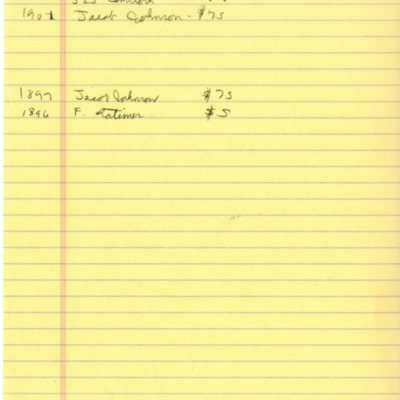 1901 Jacob Johnson - $75
1897 Jacob Johnson $75
1896 F. Latimer $5